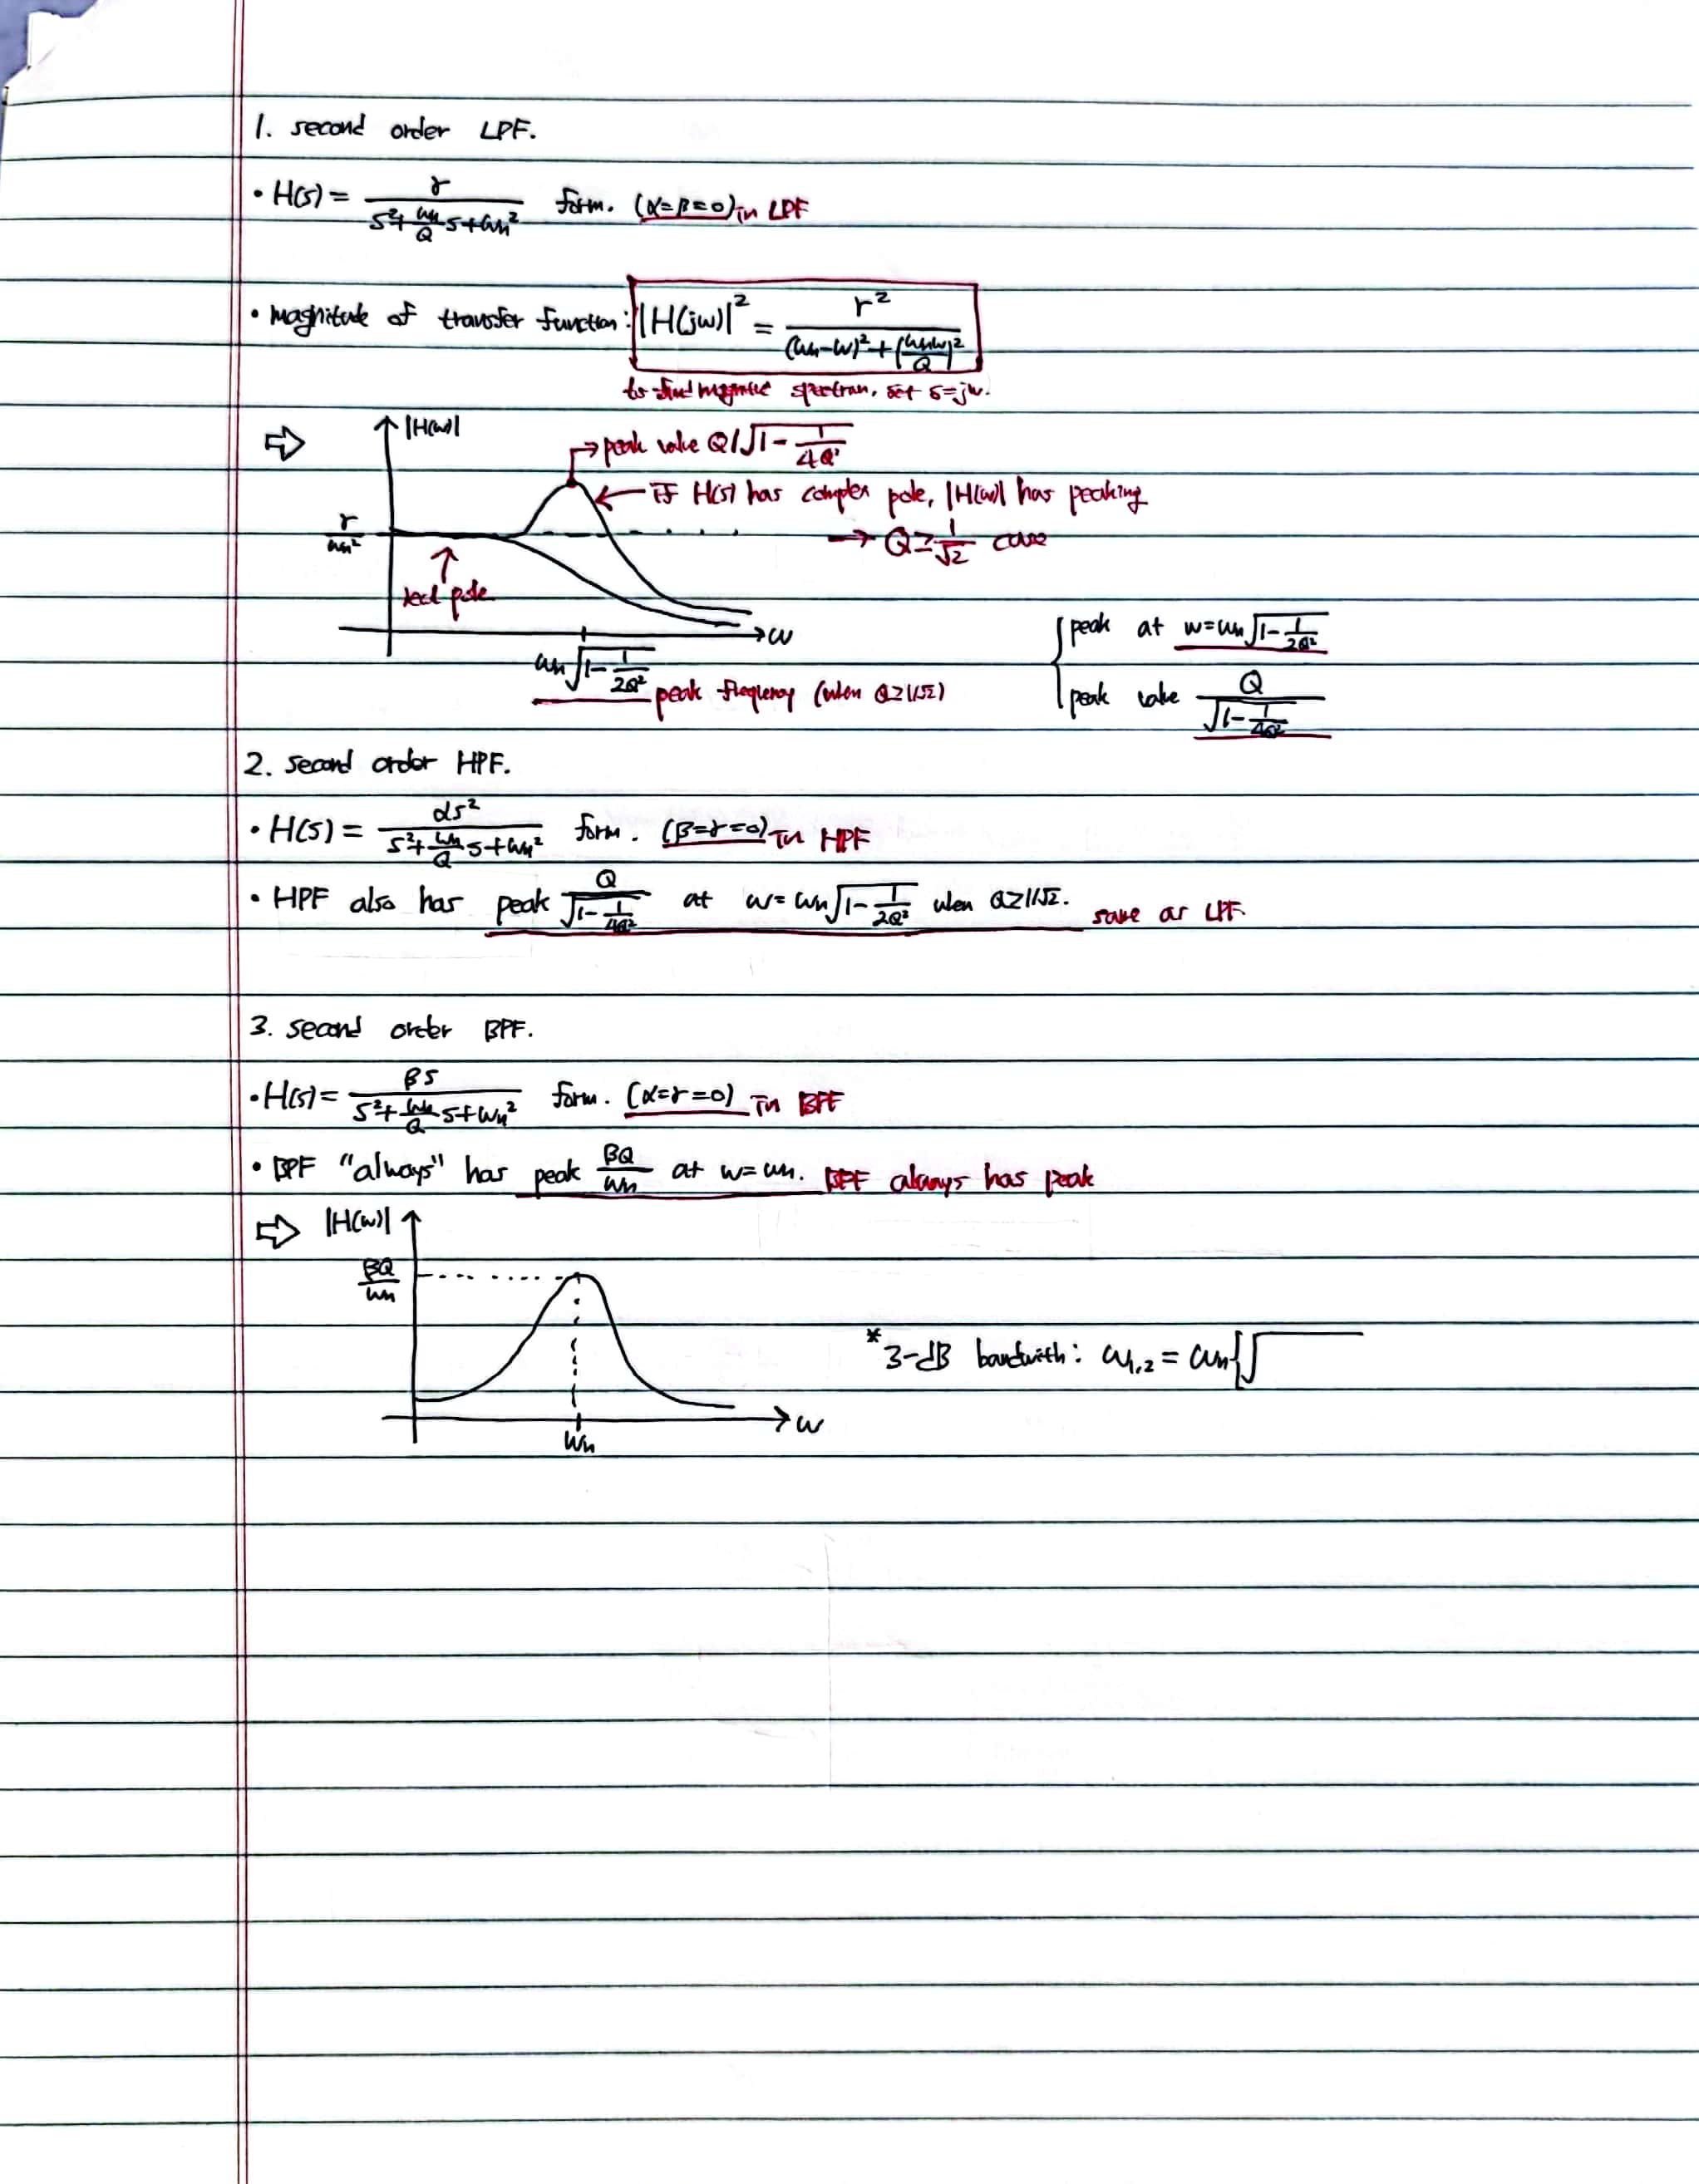 1. second order LPF.
• H(s) = γ / (s² + (ωn/Q)s + ωn²) form. (α=β=0) in LPF
• magnitude of transfer function: |H(jω)|² = r² / ((ωn-ω)² + (ωnω/Q)²)
to find magnitude spectrum, set s=jω.
⇨ |H(ω)|
→ peak value Q/√(1 - 1/4Q²)
← If H(s) has complex pole, |H(ω)| has peaking
γ/ωn²
→ Q ≥ 1/√2 case
real pole
ω
ωn√(1 - 1/2Q²) peak frequency (when Q≥1/√2)
peak at ω=ωn√(1 - 1/2Q²)
peak value Q/√(1 - 1/4Q²)
2. second order HPF.
• H(s) = αs² / (s² + (ωn/Q)s + ωn²) form. (β=γ=0) in HPF
• HPF also has peak Q/√(1 - 1/4Q²) at ω=ωn√(1 - 1/2Q²) when Q≥1/√2. same as LPF.
3. second order BPF.
• H(s) = βs / (s² + (ωn/Q)s + ωn²) form. (α=γ=0) in BPF
• BPF "always" has peak βQ/ωn at ω=ωn. BPF always has peak
⇨ |H(ω)|
βQ/ωn
* 3-dB bandwith: ω1,2 = ωn{√
ω
ωn